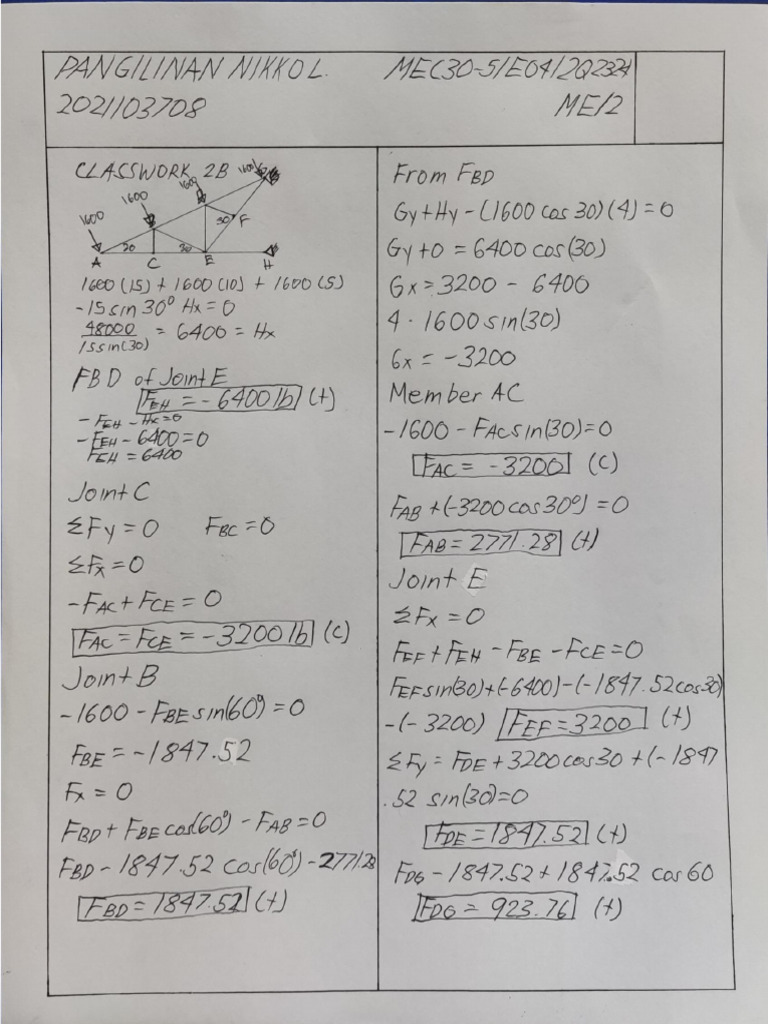 PANGILINAN NIKKO L. MEC30-5/E04/2Q2324
2021103708 ME/2
CLASSWORK 2B
1600
1600
1600
1600
30
F
30
30
A
C
E
H
1600(15) + 1600(10) + 1600(5)
-15sin30° Hx = 0
48000/15sin(30) = 6400 = Hx
FBD of Joint E
FEH = -6400lb (t)
-FEH - Hx = 0
-FEH - 6400 = 0
FEH = 6400
Joint C
ΣFy = 0 FBC = 0
ΣFx = 0
-FAC + FCE = 0
FAC = FCE = -3200lb (C)
Joint B
-1600 - FBE sin(60°) = 0
FBE = -1847.52
Fx = 0
FBD + FBE cos(60°) - FAB = 0
FBD - 1847.52 cos(60°) - 2771.28
FBD = 1847.52 (t)
From FBD
Gy + Hy - (1600 cos 30)(4) = 0
Gy + 0 = 6400 cos(30)
Gx = 3200 - 6400
4 · 1600 sin(30)
Gx = -3200
Member AC
-1600 - FAC sin(30) = 0
FAC = -3200 (C)
FAB + (-3200 cos 30°) = 0
FAB = 2771.28 (t)
Joint E
ΣFx = 0
FEF + FEH - FBE - FCE = 0
FEF sin(30) + (-6400) - (-1847.52 cos 30)
-(-3200) FEF = 3200 (t)
ΣFy = FDE + 3200 cos 30 + (-1847
.52 sin(30) = 0
FDE = 1847.52 (t)
FDG - 1847.52 + 1847.52 cos 60
FDG = 923.76 (t)